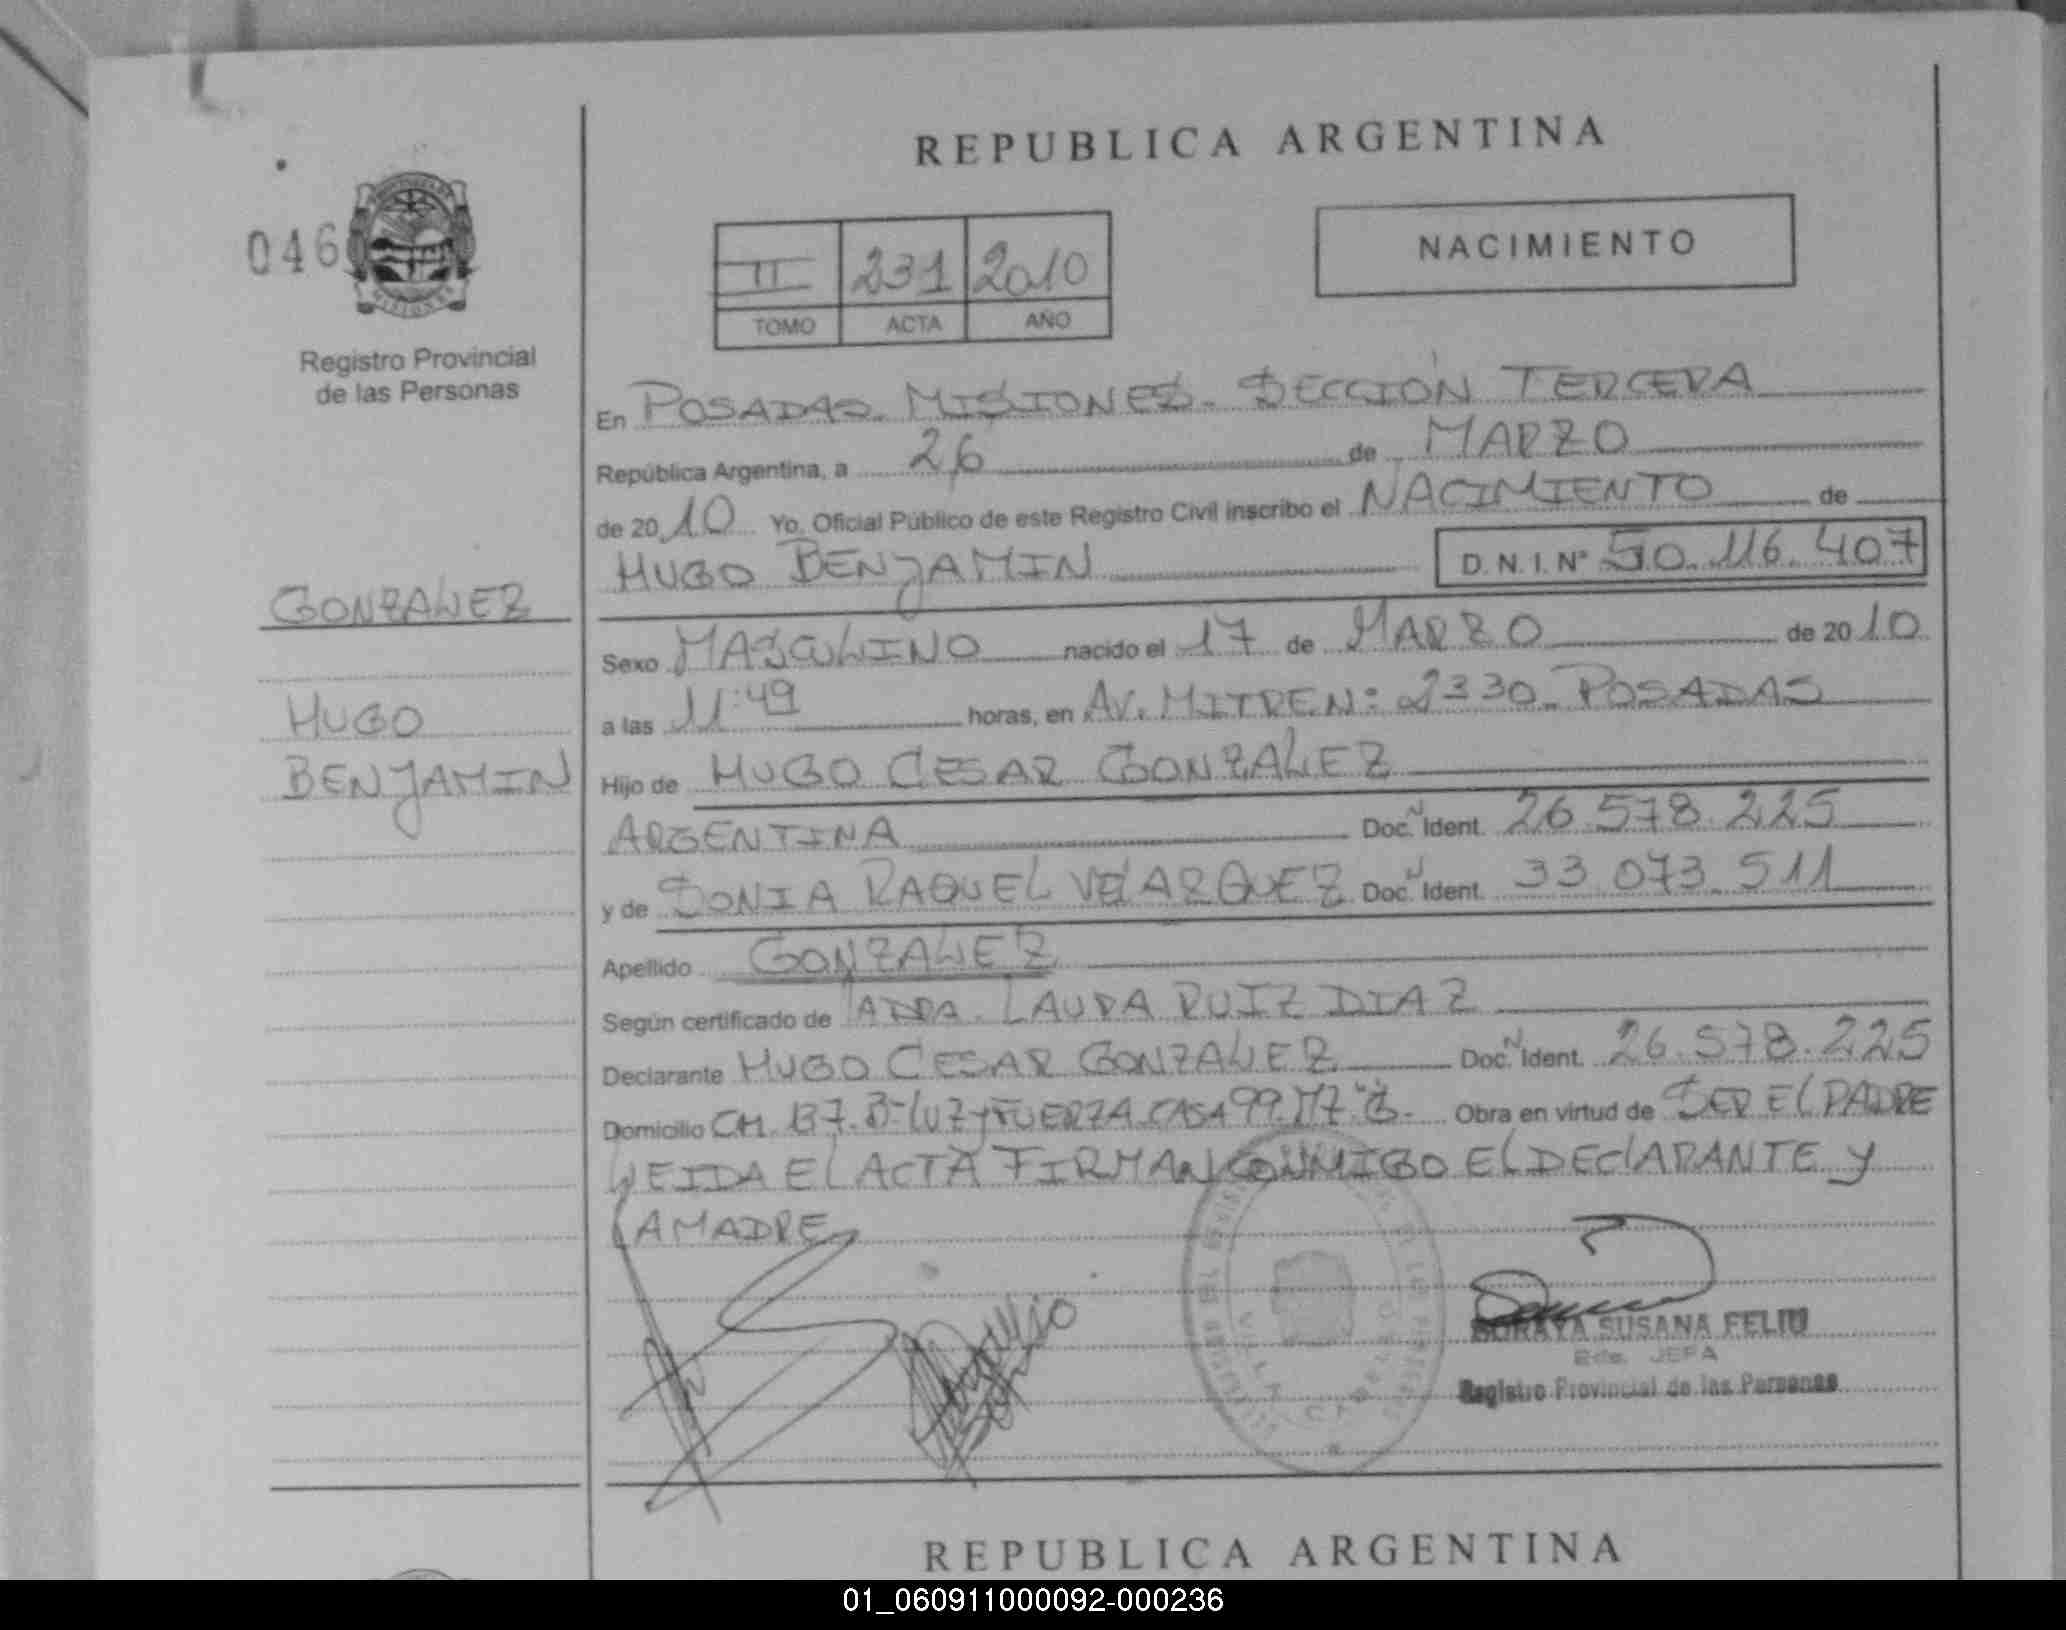 REPUBLICA ARGENTINA
046
II 231 2010
TOMO ACTA AÑO
NACIMIENTO
Registro Provincial
de las Personas
En POSADAS. MISIONES. SECCIÓN TERCERA
República Argentina, a 26 de MARZO
de 2010 Yo, Oficial Público de este Registro Civil inscribo el NACIMIENTO de
HUGO BENJAMIN D.N.I. Nº 50.116.407
GONZALEZ
HUGO
BENJAMIN
Sexo MASCULINO nacido el 17 de MARZO de 2010
a las 11:49 horas, en AV. MITRE N: 2330. POSADAS
Hijo de HUGO CESAR GONZALEZ
ARGENTINA Doc. N Ident. 26.578.225
y de SONIA RAQUEL VELAZQUEZ Doc. N Ident. 33.073.511
Apellido GONZALEZ
Según certificado de LAURA RUIZ DIAZ
Declarante HUGO CESAR GONZALEZ Doc. N Ident. 26.578.225
Domicilio CH. 137. Bº LUZ Y FUERZA CASA 99. MZ Obra en virtud de SER EL PADRE
LEIDA EL ACTA FIRMAN CONMIGO EL DECLARANTE Y
LA MADRE
SORAYA SUSANA FELIU
JEFA
Registro Provincial de las Personas
REPUBLICA ARGENTINA
01_060911000092-000236